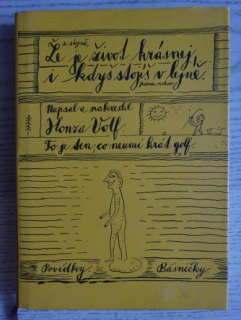 Že je život krásnej,
i když stojíš v lejně.
Napsal a nakreslil
Honza Volf
To je ten, co neumí hrát golf.
Povídky
Básničky